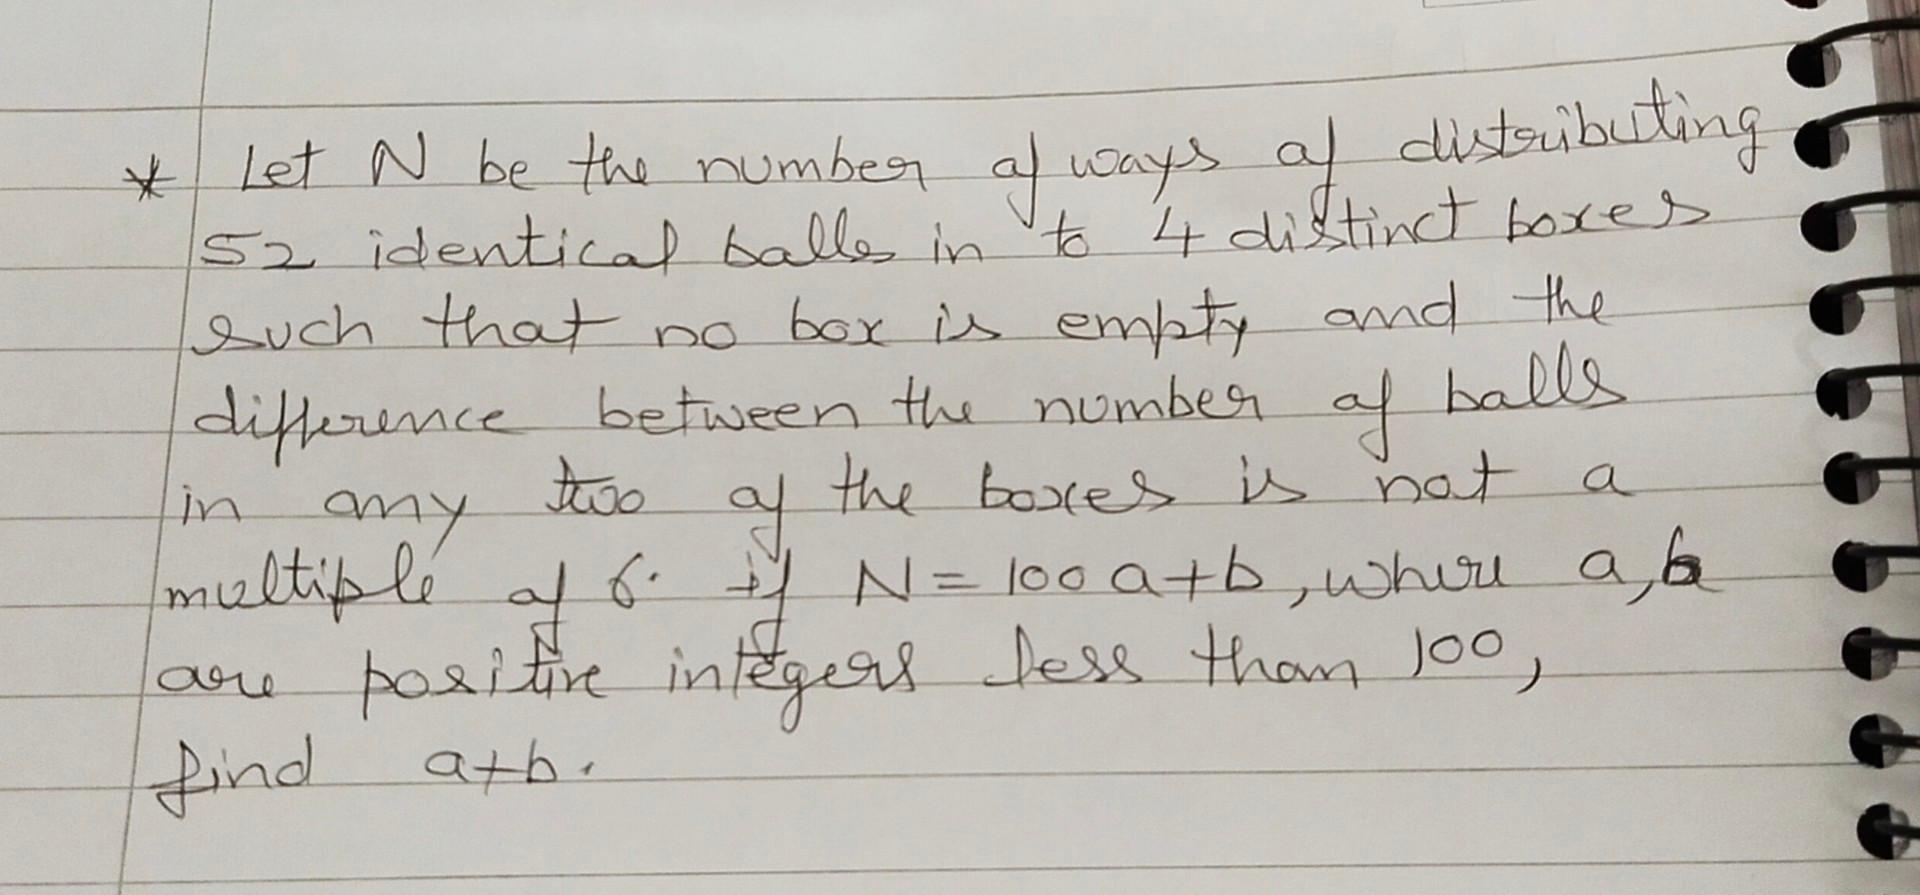 * Let N be the number of ways of distributing
52 identical balls in to 4 distinct boxes
such that no box is empty and the
difference between the number of balls
in any two of the boxes is not a
multiple of 6. if N = 100 a+b, where a, b
are positive integers less than 100,
find a+b.